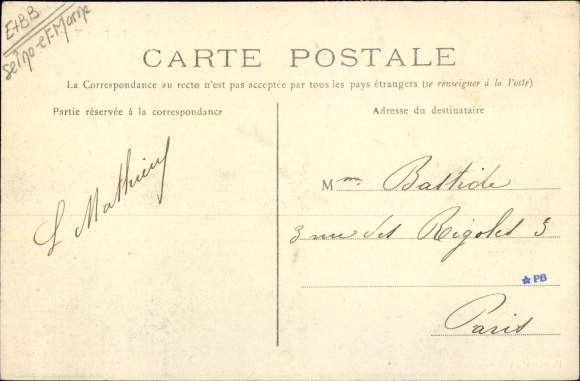 E+BB
Seine-et-Marne
CARTE POSTALE
La Correspondance au recto n'est pas acceptée par tous les pays étrangers (se renseigner à la Poste)
Partie réservée à la correspondance
Adresse du destinataire
L Mathieu
Mme Bastide
3 rue des Rigoles 3
☆PB
Paris